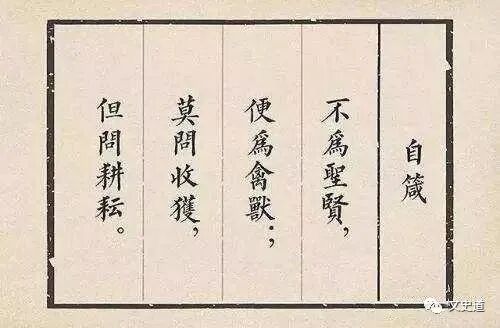 自箴
不為聖賢，
便為禽獸；
莫問收獲，
但問耕耘。
文史道